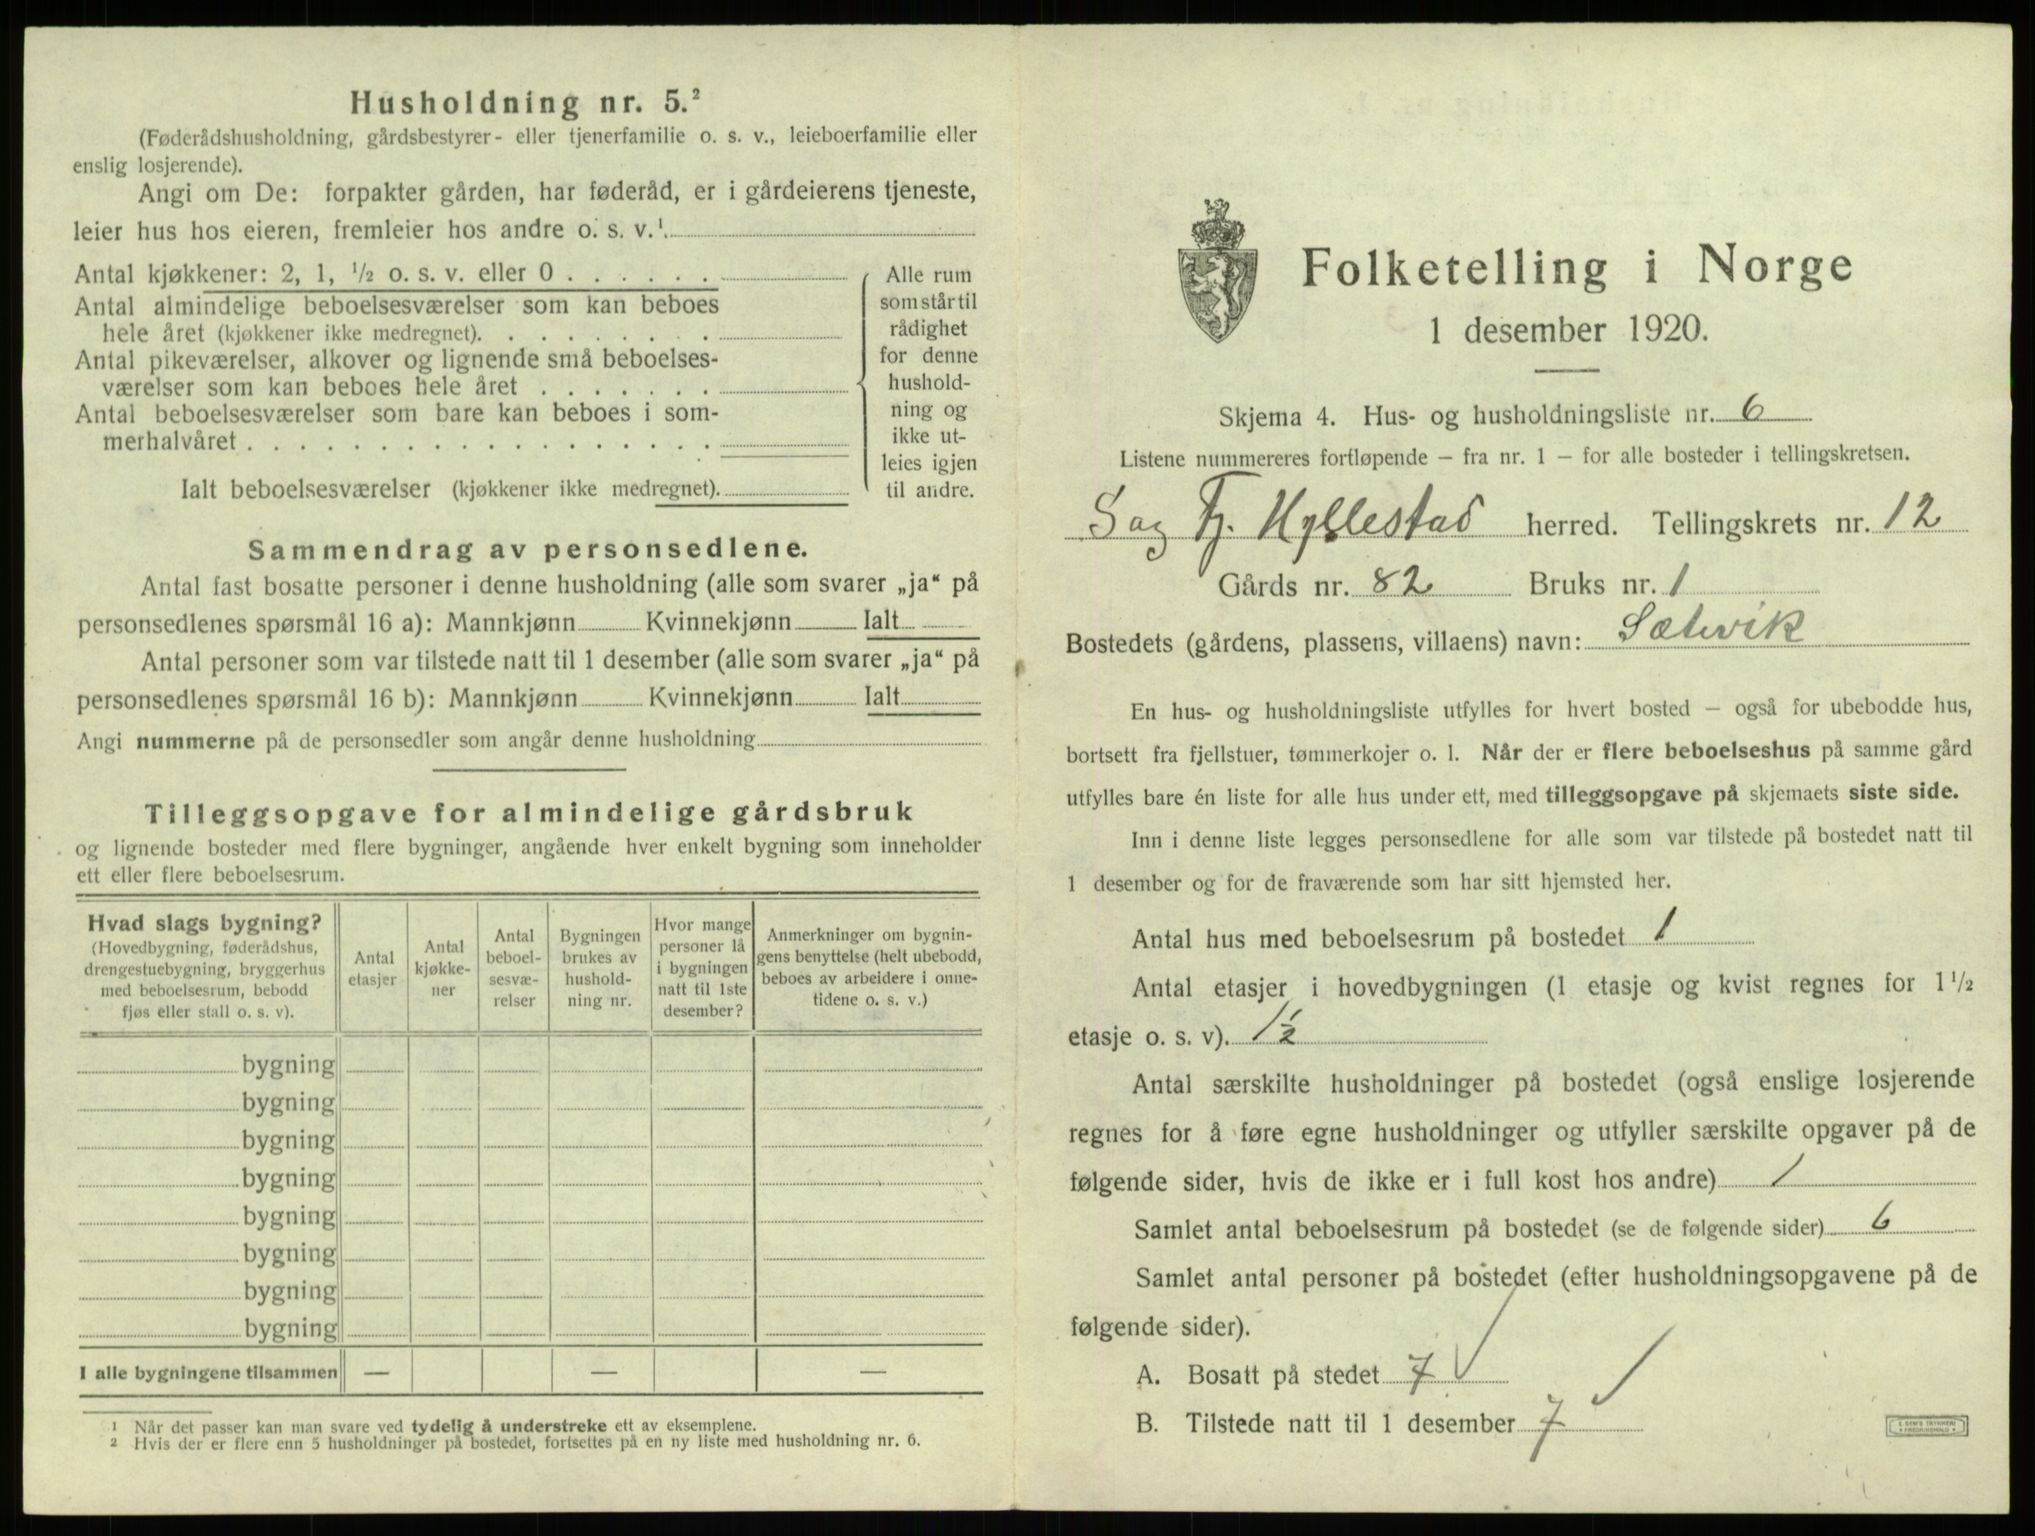 Husholdning nr. 5.²
(Føderådshusholdning, gårdsbestyrer- eller tjenerfamilie o. s. v., leieboerfamilie eller
enslig losjerende).
Angi om De: forpakter gården, har føderåd, er i gårdeierens tjeneste,
leier hus hos eieren, fremleier hos andre o. s. v.¹
Antal kjøkkener: 2, 1, ½ o. s. v. eller 0 . . . . . .
Antal almindelige beboelsesværelser som kan beboes
hele året (kjøkkener ikke medregnet). . . . . . . . .
Antal pikeværelser, alkover og lignende små beboelses-
værelser som kan beboes hele året . . . . . . .
Antal beboelsesværelser som bare kan beboes i som-
merhalvåret . . . . . . . . . . . . . . . . . .
Ialt beboelsesværelser (kjøkkener ikke medregnet).
Alle rum
som står til
rådighet
for denne
hushold-
ning og
ikke ut-
leies igjen
til andre.
Sammendrag av personsedlene.
Antal fast bosatte personer i denne husholdning (alle som svarer „ja“ på
personsedlenes spørsmål 16 a): Mannkjønn Kvinnekjønn Ialt
Antal personer som var tilstede natt til 1 desember (alle som svarer „ja“ på
personsedlenes spørsmål 16 b): Mannkjønn Kvinnekjønn Ialt
Angi nummerne på de personsedler som angår denne husholdning
Tilleggsopgave for almindelige gårdsbruk
og lignende bosteder med flere bygninger, angående hver enkelt bygning som inneholder
ett eller flere beboelsesrum.
Hvad slags bygning?
(Hovedbygning, føderådshus,
drengestuebygning, bryggerhus
med beboelsesrum, bebodd
fjøs eller stall o. s. v).
Antal
etasjer
Antal
kjøkke-
ner
Antal
beboel-
sesvæ-
relser
Bygningen
brukes av
hushold-
ning nr.
Hvor mange
personer lå
i bygningen
natt til 1ste
desember?
Anmerkninger om bygnin-
gens benyttelse (helt ubebodd,
beboes av arbeidere i onne-
tidene o. s. v.)
bygning
bygning
bygning
bygning
bygning
bygning
bygning
bygning
I alle bygningene tilsammen — — —
¹ Når det passer kan man svare ved tydelig å understreke ett av eksemplene.
² Hvis der er flere enn 5 husholdninger på bostedet, fortsettes på en ny liste med husholdning nr. 6.
Folketelling i Norge
1 desember 1920.
Skjema 4. Hus- og husholdningsliste nr. 6
Listene nummereres fortløpende – fra nr. 1 – for alle bosteder i tellingskretsen.
Sog Fj. Hyllestad herred. Tellingskrets nr. 12
Gårds nr. 82 Bruks nr. 1
Bostedets (gårdens, plassens, villaens) navn: Sætevik
En hus- og husholdningsliste utfylles for hvert bosted – også for ubebodde hus,
bortsett fra fjellstuer, tømmerkojer o. l. Når der er flere beboelseshus på samme gård
utfylles bare én liste for alle hus under ett, med tilleggsopgave på skjemaets siste side.
Inn i denne liste legges personsedlene for alle som var tilstede på bostedet natt til
1 desember og for de fraværende som har sitt hjemsted her.
Antal hus med beboelsesrum på bostedet 1
Antal etasjer i hovedbygningen (1 etasje og kvist regnes for 1½
etasje o. s. v). 1½
Antal særskilte husholdninger på bostedet (også enslige losjerende
regnes for å føre egne husholdninger og utfyller særskilte opgaver på de
følgende sider, hvis de ikke er i full kost hos andre) 1
Samlet antal beboelsesrum på bostedet (se de følgende sider) 6
Samlet antal personer på bostedet (efter husholdningsopgavene på de
følgende sider).
A. Bosatt på stedet 7
B. Tilstede natt til 1 desember 7